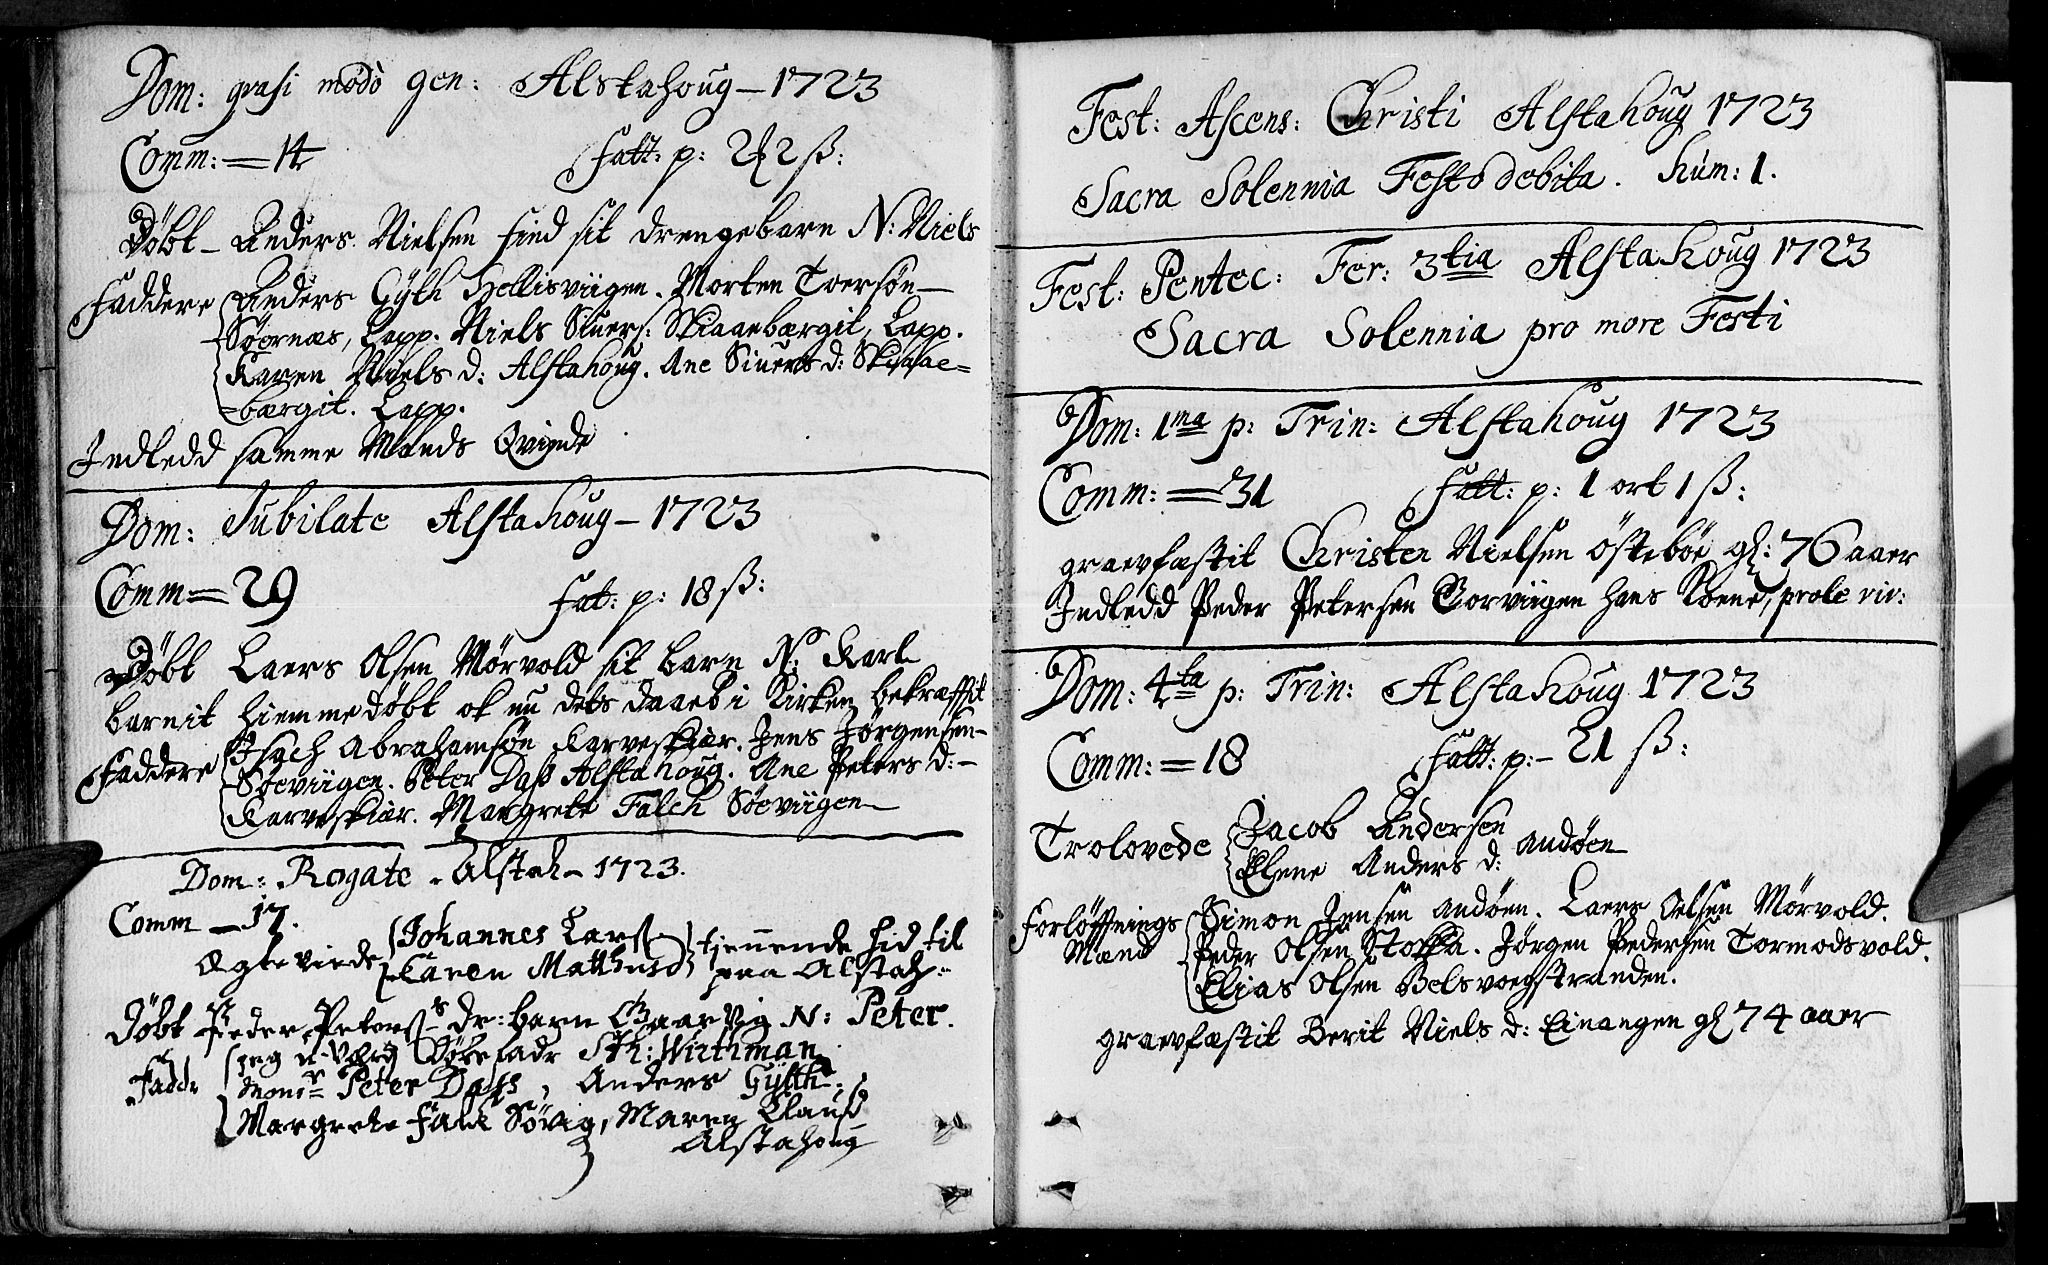 Dom: qvasi modò gen: Alstahoug – 1723
Comm: = 14 Fatt: p: 2 ß:
Døbt – Anders Nielsen Find sit drengebarn N: Niels
Faddere Anders Gÿth Hellisviigen. Morten Toersøn –
Søornæs, Lapp. Niels Siuers: Skiaaebærgit, Lapp.
Karen Niels d: Alstahoug. Ane Siuers d: Skiaae=
=bærgit. Lapp.
Indledd samme Mands Qvinde
Dom: Jubilate Alstahoug – 1723
Comm = 29 Fat: p: 18 ß:
Døbt Laers Olsen Mørvold sit barn N: Karl
barnit hiemmedøbt ok nu dets daaeb i Kirken bekræfftit
Faddere Isach Abrahamsøn Karveskiær. Jens Jørgensen –
Søeviigen. Peter Dass Alstahoug. Ane Peters d: –
Karveskiær. Margrete Falch Søeviigen
Dom: Rogate . Alstah – 1723.
Comm – 17.
Ægteviede Johannes Lars: tienende hid til
Karen Matthisd paa Alstah:
Døbt Peder Peterss dr: barn Gaarvig N: Peter.
Faddr jeg Sth: Wirthman
Mons: Peter Dass, Anders Gÿth
Margrete Falk Søvig, Maren Clausd
Alstahoug
Fest: Ascens: Christi Alstahoug 1723
Sacra Solennia Festo debita. hum: 1.
Fest: Pentec: Fer: 3tia Alstahoug 1723
Sacra Solennia pro more Festi
Dom: 1ma p: Trin: Alstahoug 1723
Comm: = 31 Fatt: p: 1 ort 1 ß:
graevfæstit Christen Nielsen Östebøe gl: 76 aaer
Indledd Peder Petersen Gorviigen hans Koene, prole viv:
Dom: 4ta p: Trin: Alstahoug 1723
Comm: = 18 Fatt: p: – 21 ß:
Trolovede Jacob Andersen Andøen
Elene Anders d:
Forløffnings Simon Jensen Andøen. Laers Oelsen Mørvold.
Mænd Peder Olsen Stokka. Jørgen Pedersen Tormodsvold.
Elias Olsen Belsvoegstranden.
graevfæstit Berit Niels d: Einangen gl 74 aaer